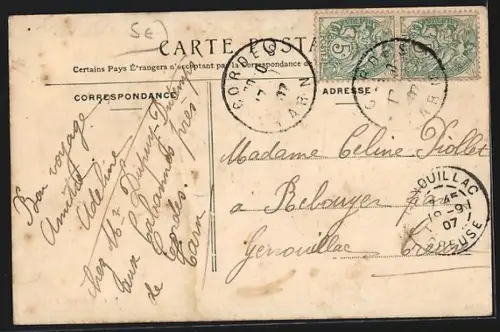 5€
CARTE POSTA
Certains Pays Etrangers n'acceptant pas la correspondance de
CORRESPONDANCE
ADRESSE
CORDES
TARN
CORDES
TARN
5
Bon voyage
Amitiés
Adeline
chez Mr Dupuy
aux Cabannes près
de Cordes.
Tarn
Madame Céline Viollet
a Rebouyer par
Genouillac Creuse
OUILLAC
07
CREUSE